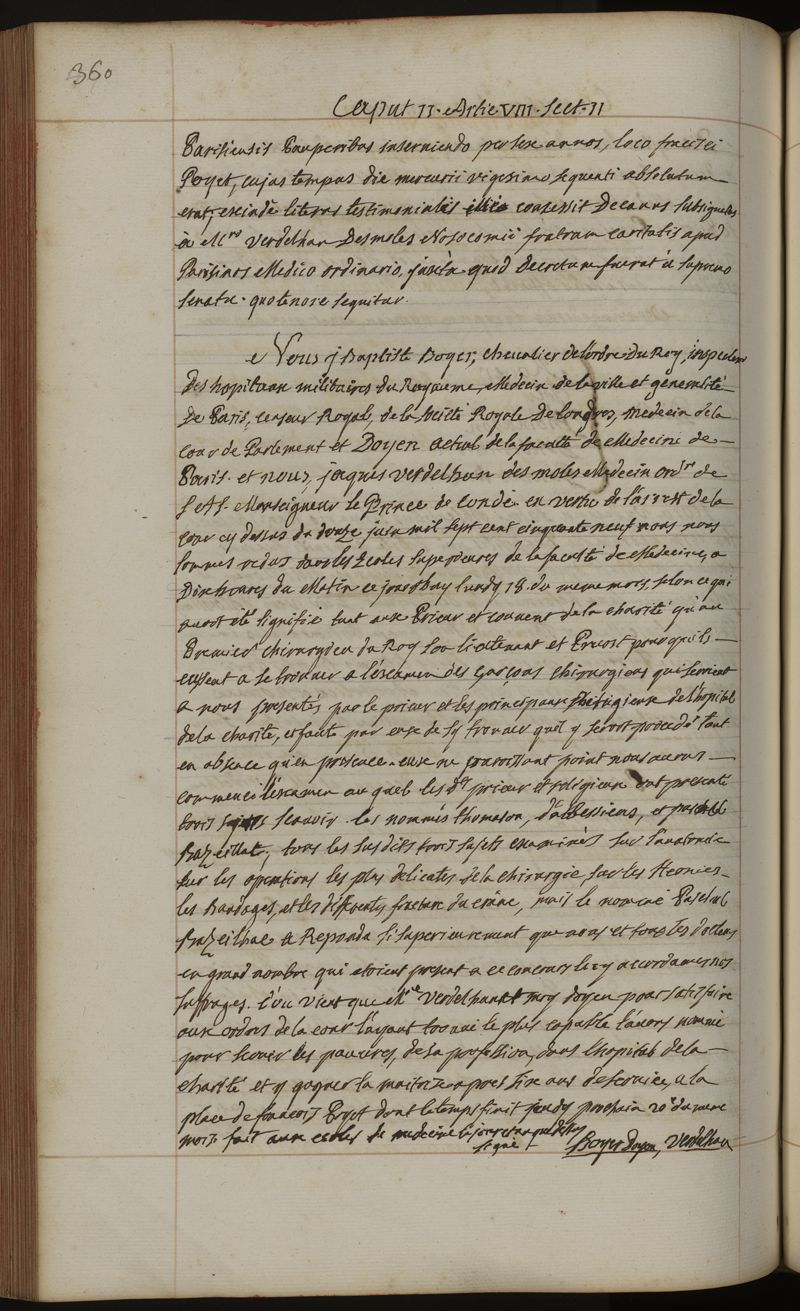 360
Caput II. Artic VIII. Sect. II
Parisiensis Pauperibus inserviendo per sex annos, loco francisci
Poyet, cujus tempus die mercurii vigesimo sequenti absolutum
erat, exinde literas testimoniales illico concessit Decanus subsignatas
a Mro Verdelhan Desmoles Nosocomii fratrum caritatis apud
Parisinos Medico ordinario, juxta quod decretum fuerat à supremo
senatu. quo tenore sequitur.
Nous j Baptiste Boyer, chevalier de l'ordre du Roy, inspecteur
des hopitaux militaires du Royaume, Medecin de la ville et généralité
De Paris, censeur Royal, de la société Royale De londres, medecin de la
cour de Parlement et Doyen actuel de la faculté de Medecine de
Paris. et nous, jaques verdelhan des moles Medecin ordre de
S A S. Monseigneur le Prince de Condé en vertu de l'arrest de la
cour cy dessus du douze juin mil sept cent cinquante neuf nous nous
sommes rendus dans les Ecoles superieures de la faculté de Medecine, a
Dix heures du Matin ce jourdhuy lundy 18. du meme mois, selon ce qui
avoit été signifié tant aux Prieur et couvent de la charité qu'au
Premier chirurgien du Roy son lieutenant et Prevost pour qu'ils
eussent a se trouver a l'éxamen des garçons chirurgiens qui seroient
a nous presentés par le prieur et les principaux Religieux de l'hopital
de la charité, et faute par eux de s'y trouver qu'il y seroit procedé tant
en absence qu'en presence. eux ne paroissant point nous avons
commencé l'éxamen au quel les dts prieur et religieux ont presenté
trois sujets scavoir les nommés thomason, Dabessiens, et pascal
Bazeillac, tous les susdits trois sujets examinés sur l'anatomie
sur les operations les plus delicates de la chirurgie, sur les Hernies
les Bandages, et les differents fractures du crâne, mais le nommé Pascal
Bazeilhac a Repondu si superieurement que nous et tous les docteurs
en grand nombre qui etoient present a ce concours luy accordames nos
suffrages. l'ou vient que Mre Verdelhan et moy doyen pour satisfaire
aux ordres de la cour l'ayant trouvé le plus capable l'avons nommé
pour les pauvres, de sa profession, dans l'hopital de la
charité et y gagner la maitrise apres six ans de service, a la
place de francois Poyet dont le temps finit jeudy prochain 20e du meme
mois fait aux ecoles de medecine les jour et an que dessus
signé Boyer doyen, Verdelhan